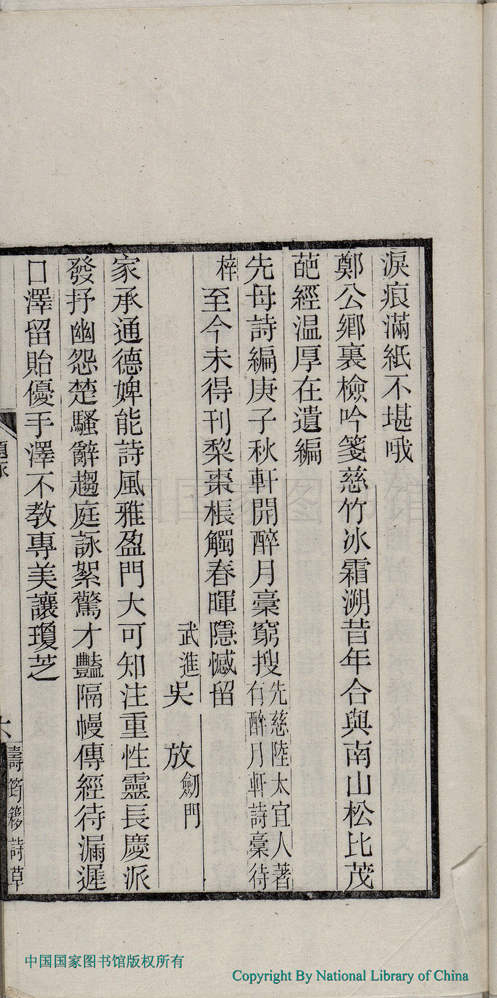 淚痕滿紙不堪哦
鄭公鄉裏檢吟箋慈竹冰霜溯昔年合與南山松比茂
葩經温厚在遺編
先母詩編庚子秋軒開醉月稾窮搜先慈陸太宜人著有醉月軒詩稾待
梓至今未得刊棃棗棖觸春暉隱憾留
武進吴放劒門
家承通德婢能詩風雅盈門大可知注重性靈長慶派
發抒幽怨楚騷辭趨庭詠絮驚才豔隔幔傳經待漏遲
口澤留貽優手澤不敎專美讓瓊芝
壽筠簃詩草
中国国家图书馆版权所有
Copyright By National Library of China